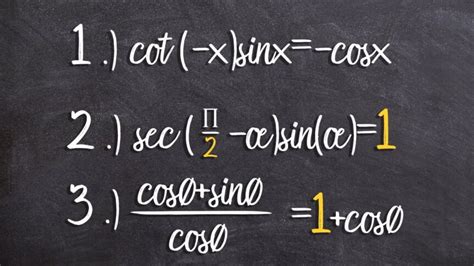 1.) cot(-x)sinx=-cosx
2.) sec(π/2-œ)sin(œ)=1
3.) cosØ+sinØ/cosØ=1+cosØ